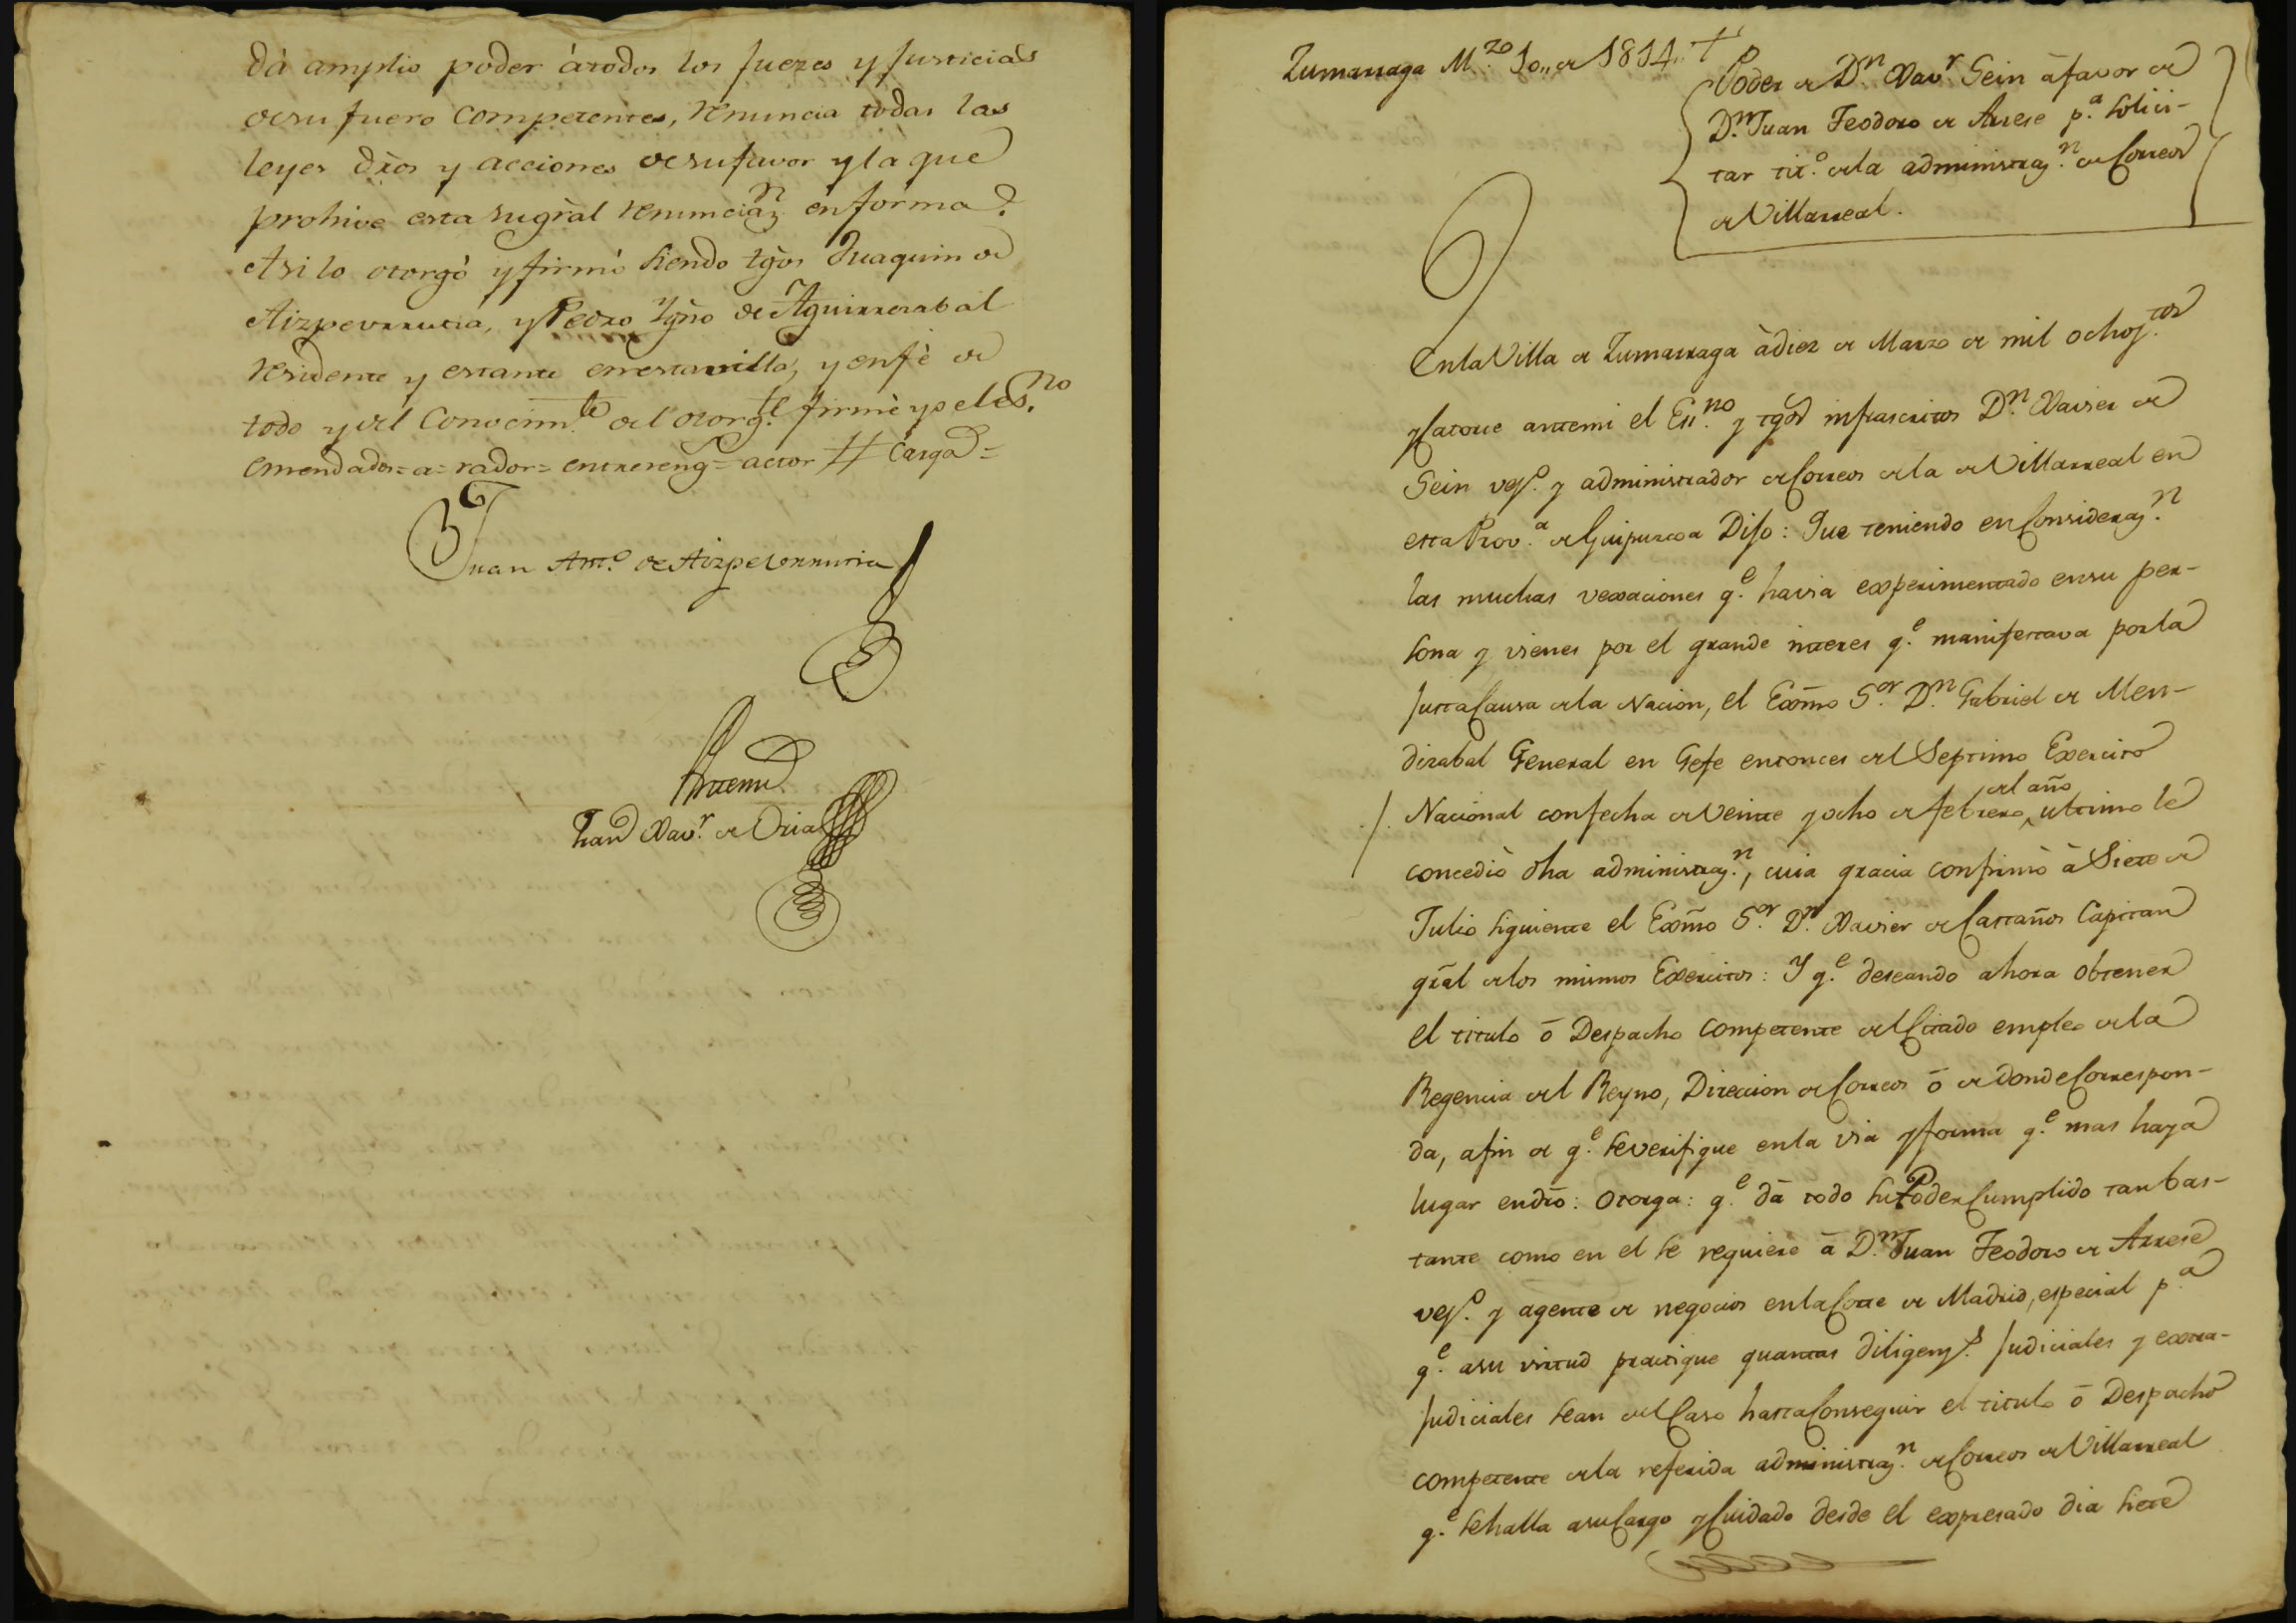 dá amplio poder átodos los juezes y justicias
desu fuero Competentes, renuncia todas las
leyes dros y acciones desufavor y la que
prohive esta sugral renunciaz.n enforma.
Asi lo otorgò y firmò siendo tgos Juaquin de
Aizpeurrutia, y Pedro Ygno de Aguirresabal
residente y estante enestavilla, y enfè de
todo y del Conocim.to del otorg.te firmè yo el es.no
emendados=a=rador= entrereng= actor # Carga=
Juan Ant.o de Aizpeurrutia
Antemi
Juan Xav.r de Oria
Zumarraga M.zo 10,, de 1814,, †
Poder de D.n Xav.r Gein àfavor de
D.n Juan Teodoro de Arrese p.a solici-
tar tit.o dela administraz.n de Correos
de Villarreal.
Enla Villa de Zumarraga à diez de Marzo de mil ochoz.tos
y Catorce antemi el Es.no y tgos infrascritos D.n Xavier de
Gein vez.o y administrador de Correos dela de Villarreal en
esta Prov.a de Guipuzcoa Dijo: Que teniendo en Consideraz.n
las muchas vexaciones q.e havia experimentado ensu per-
sona y vienes por el grande interes q.e manifestava porla
justa Causa dela Nacion, el Exmo S.or D.n Gabriel de Men-
dizabal General en Gefe entonces del Septimo Exercito
del año
Nacional confecha de Veinte y ocho de febrero, ultimo le
concediò dha administraz.n, cuia gracia confirmò à Siete de
Julio siguiente el Exmo S.or D.n Xavier de Castaños Capitan
gral delos mismos Exercitos: Y q.e deseando ahora obtener
el titulo ò Despacho competente del Citado empleo dela
Regencia del Reyno, Direccion de Correos ò de donde Correspon-
da, afin de q.e severifique enla via y forma q.e mas haya
lugar endro: Otorga: q.e dà todo su Poder Cumplido tan bas-
tante como en el se requiere à D.n Juan Teodoro de Arrese
vez.o y agente de negocios enla Corte de Madrid, especial p.a
q.e asu virtud practique quantas diligenz.s judiciales y extra-
judiciales sean del Caso hasta Conseguir el titulo ò Despacho
competente dela referida administraz.n de Correos de Villarreal
q.e sehalla asu Cargo y Cuidado desde el expresado dia siete